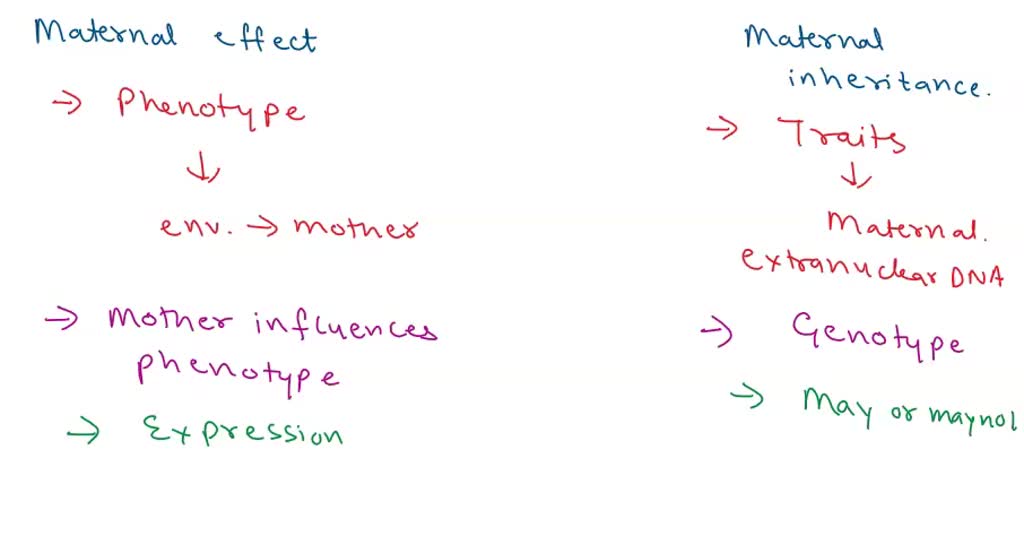 Maternal effect
→ Phenotype
↓
env. → mother
→ Mother influences
phenotype
→ Expression
Maternal
inheritance.
→ Traits
↓
Maternal.
extranuclear DNA
→ Genotype
→ May or maynot